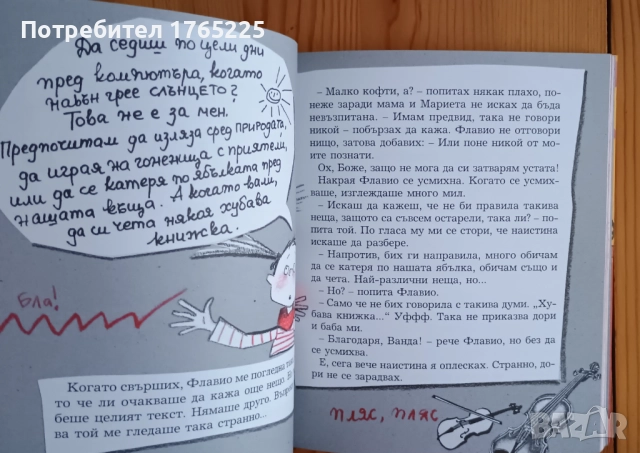 Потребител 1765225
Да седиш по цели дни
пред компютъра, когато
навън грее слънцето?
Това не е за мен.
Предпочитам да изляза сред природата,
да играя на гоненица с приятели,
или да се катеря по ябълката пред
нащата къща. А когато вали,
да си чета някоя хубава
книжка.
Бла!
Когато свърших, Флавио ме погледна
то че ли очакваше да кажа още нещо.
беше целият текст. Нямаше друго.
ва той ме гледаше така странно...
– Малко кофти, а? – попитах някак плахо, по-
неже заради мама и Мариета не исках да бъда
невъзпитана. – Имам предвид, така не говори
никой – побързах да кажа. Флавио не отговори
нищо, затова добавих: – Или поне никой от мо-
ите познати.
Ох, Боже, защо не мога да си затварям устата!
Накрая Флавио се усмихна. Когато се усмих-
ваше, изглеждаше много мил.
– Искаш да кажеш, че не би правила такива
неща, защото са съвсем остарели, така ли? – по-
пита той. По гласа му ми се стори, че наистина
искаше да разбере.
– Напротив, бих ги направила, много обичам
да се катеря по нашата ябълка, обичам също и
да чета. Най-различни неща, но...
– Но? – попита Флавио.
– Само че не бих говорила с такива думи. „Ху-
бава книжка...“ Уффф. Така не приказва дори
и баба ми.
– Благодаря, Ванда! – рече Флавио, но без да
се усмихва.
Е, сега вече наистина я оплесках. Странно, до-
ри не се зарадвах.
пляс, пляс
BAZAR